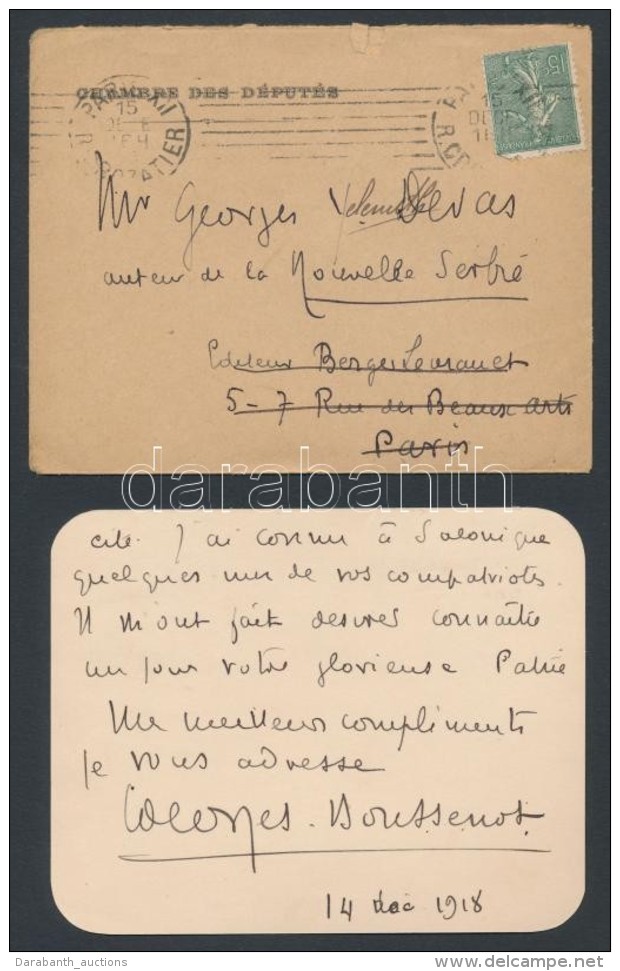 CHAMBRE DES DÉPUTÉS
PARIS XII
15
R. CROZATIER
15c
Mr Georges Devas
auteur de la Nouvelle Serbie
Editeur Berger Levrault
5-7 Rue des Beaux arts
Paris
darabanth
cité. J'ai connu à Salonique
quelques uns de vos compatriotes.
Il m'ont fait desirer connaitre
un jour votre glorieuse Patrie
Mes meilleurs compliments
je vous adresse
Georges Boussenot
14 dec 1918
Darabanth_auctions
delcampe.net